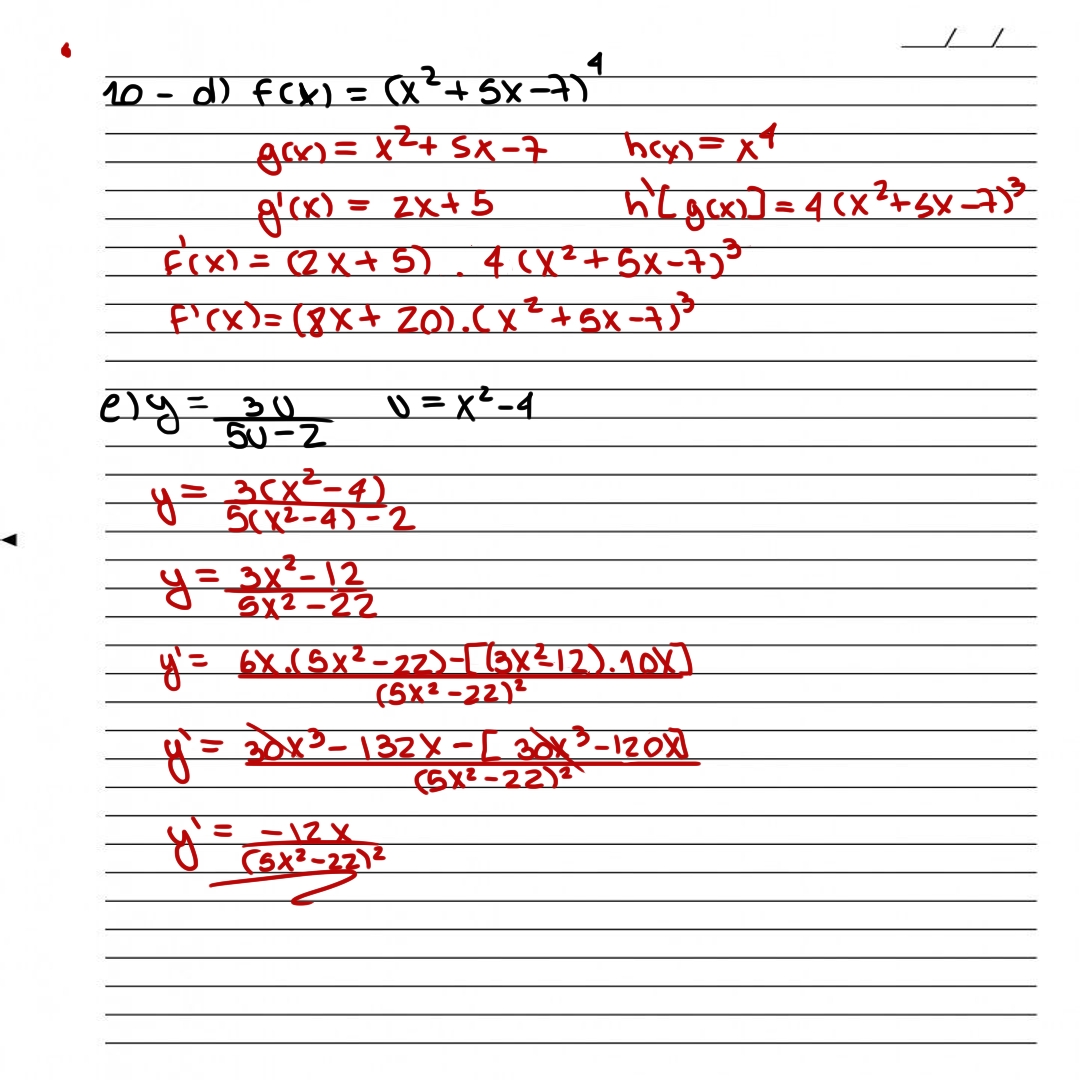 10 - d) f(x) = (x²+5x-7)⁴
g(x) = x²+5x-7 h(x) = x⁴
g'(x) = 2x+5 h'[g(x)] = 4(x²+5x-7)³
f'(x) = (2x+5) . 4(x²+5x-7)³
f'(x) = (8x+20).(x²+5x-7)³
e) y = 3u/5u-2 u = x²-4
y = 3(x²-4)/5(x²-4)-2
y = 3x²-12/5x²-22
y' = 6x.(5x²-22)-[(3x²-12).10x]/(5x²-22)²
y' = 30x³-132x-[30x³-120x]/(5x²-22)²
y' = -12x/(5x²-22)²